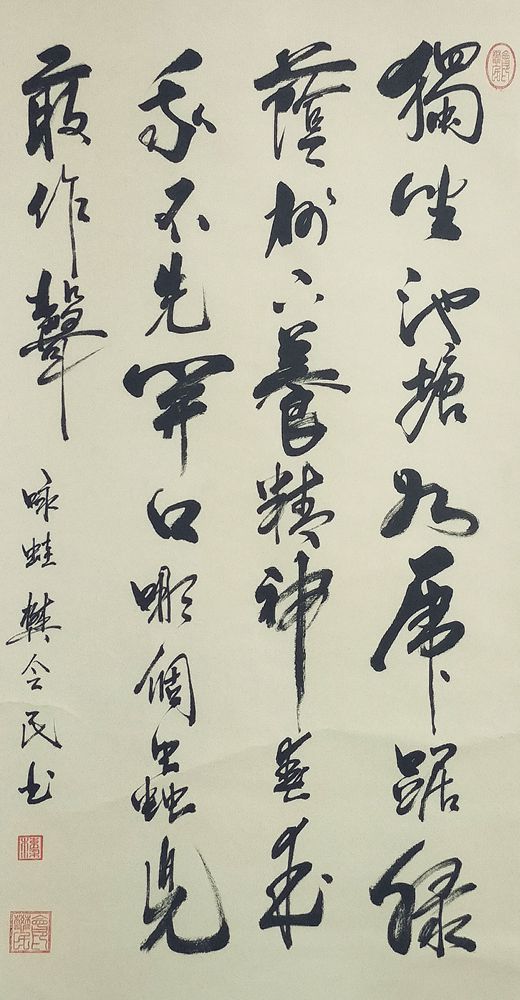 獨坐池塘如虎踞綠
蔭树下養精神春來
我不先開口哪個蟲兒
敢作聲
咏蛙 樊会民书